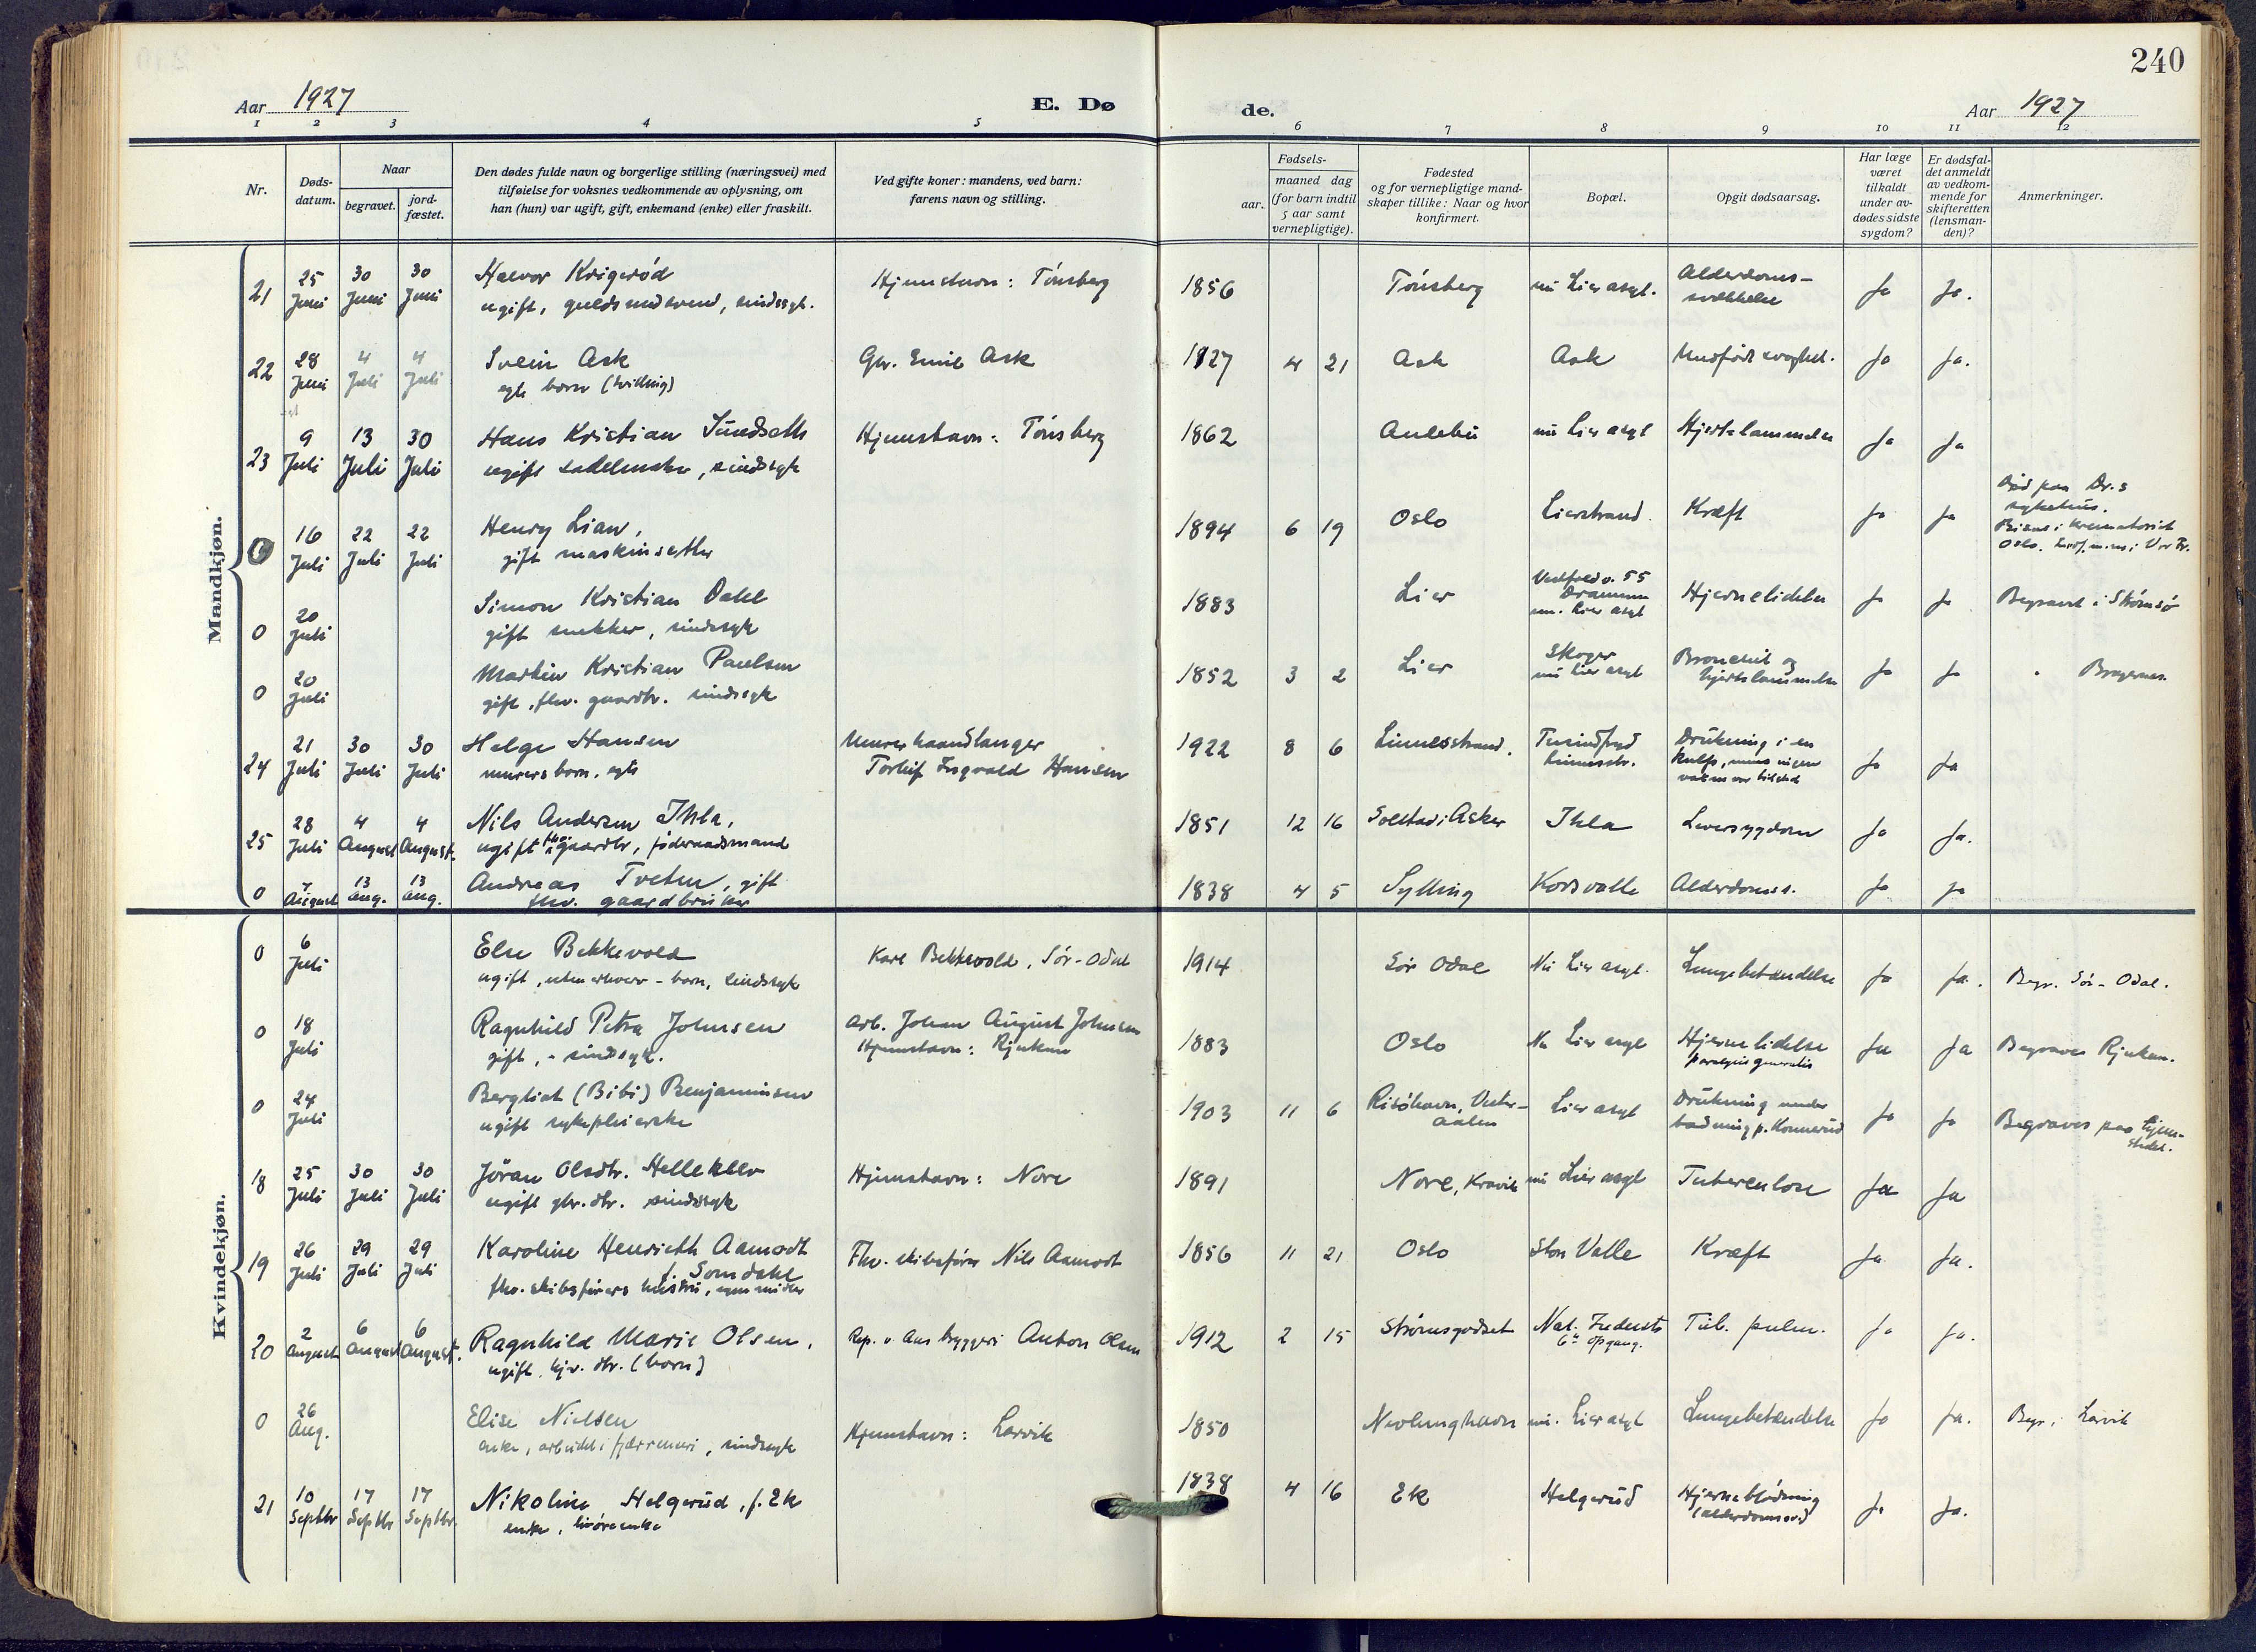 240
Aar 1927
E. Dø
de.
Aar 1927
1 2 3 4 5 6 7 8 9 10 11 12
Nr.
Døds-
datum.
Naar
begravet.
jord-
fæstet.
Den dødes fulde navn og borgerlige stilling (næringsvei) med
tilføielse for voksnes vedkommende av oplysning, om
han (hun) var ugift, gift, enkemand (enke) eller fraskilt.
Ved gifte koner: mandens, ved barn:
farens navn og stilling.
Fødsels-
aar.
maaned dag
(for barn indtil
5 aar samt
vernepligtige).
Fødested
og for vernepligtige mand-
skaper tillike: Naar og hvor
konfirmert.
Bopæl.
Opgit dødsaarsag.
Har læge
været
tilkaldt
under av-
dødes sidste
sygdom?
Er dødsfal-
det anmeldt
av vedkom-
mende for
skifteretten
(lensman-
den)?
Anmerkninger.
Mandkjøn.
21 25 Juni 30 Juni 30 Juni Halvor Krigerød Hjemstavn: Tønsberg 1856 Tønsberg nu Lier asyl. Alderdoms-
ugift, guldsmedsvend, sindssyk. svækkelse Ja Ja.
22 28 Juni 4 Juli 4 Juli Svein Ask Gbr. Emil Ask 1927 4 21 Ask Ask Medfødt svaghet. Ja Ja.
egte barn (tvilling)
23 9 Juli 13 Juli 30 Juli Hans Kristian Hjemstavn: Tønsberg 1862 nu Lier asyl Hjertelammelse Ja Ja
ugift sadelmaker, sindssyk
0 16 Juli 22 Juli 22 Juli Henry Lian, 1894 6 19 Oslo Lierstrand Kræft Ja Ja Død paa Dr.s
gift maskinsetter sykehus.
i krematoriet
Oslo.
0 20 Juli Simon Kristian Dahl 1883 Lier 55
gift snekker, sindssyk Drammen Hjernelidelse Ja Ja Begravet i Strømsø
nu Lier asyl
0 20 Juli Martin Kristian Paulsen 1852 3 2 Lier Skoger Bronchit og Ja Ja " Bragernes
gift, fhv. gaardbr. sindssyk nu Lier asyl hjertelammelse
24 21 Juli 30 Juli 30 Juli Helge Hansen Murerhaandlanger 1922 8 6 Linnesstrand. Linnesstr. Drukning i en
murers barn, egte Torleif Ingvald Hansen kulp, mens ingen Ja Ja
voksen var tilstede
25 28 Juli 4 August 4 August. Nils Andersen Ihla, 1851 12 16 Solstad i Asker Ihla Leversygdom Ja Ja.
ugift fhv. gaardbr, føderaadsmand
0 7 August 13 Aug. 13 Aug. Andreas Tveten, gift 1838 4 5 Sylling Korsvalle Alderdomss. Ja Ja
fhv. gaardbruker
Kvindekjøn.
0 6 Juli Else Bekkevold Karl Bekkevold, Sør-Odal 1914 Sør Odal Nu Lier asyl. Lungebetændelse Ja Ja. Begr. Sør-Odal.
ugift, uten erhverv - barn, sindssyk
0 18 Juli Ragnhild Petra Johnsen Arb. Johan August Johnsen 1883 Oslo Nu Lier asyl Hjernelidelse Ja Ja Begraves Rjukan.
gift, - sindssyk. Hjemstavn: Rjukan paralysis generalis
0 24 Juli Bergliot (Bibi) Benjaminsen 1903 11 6 Risøhavn, Vester- Lier asyl Drukning under Ja Ja Begraves paa hjem-
ugift sykepleierske aalen badning p. Konnerud stedet.
18 25 Juli 30 Juli 30 Juli Jøran Olsdtr. Helleklev Hjemstavn: Nore 1891 Nore, Kravik nu Lier asyl Tuberculose Ja Ja
ugift gbr.dtr. sindssyk
19 26 Juli 29 Juli 29 Juli Karoline Henriette Aamodt Fhv. skibsfører Nils Aamodt 1856 11 21 Oslo Stor Valle Kræft Ja Ja.
f. Somdahl
fhv. skibsførers hustru, egne midler
20 2 August 6 August 6 August. Ragnhild Marie Olsen, Rep. v. Aas bryggeri Anton Olsen 1912 2 15 Strømsgodset Tub. pulm. Ja Ja.
ugift, dtr. (barn) opgang.
0 26 Aug. Elise Nielsen Hjemstavn: Larvik 1850 Nevlunghavn nu Lier asyl Lungebetændelse Ja Ja. Begr. i Larvik
enke, sindssyk
21 10 Septbr 17 Septbr 17 Septbr. Nikoline Helgerud, f. Ek 1838 4 16 Ek Helgerud Hjerneblødning Ja Ja.
enke, livøreenke (alderdomssv.)